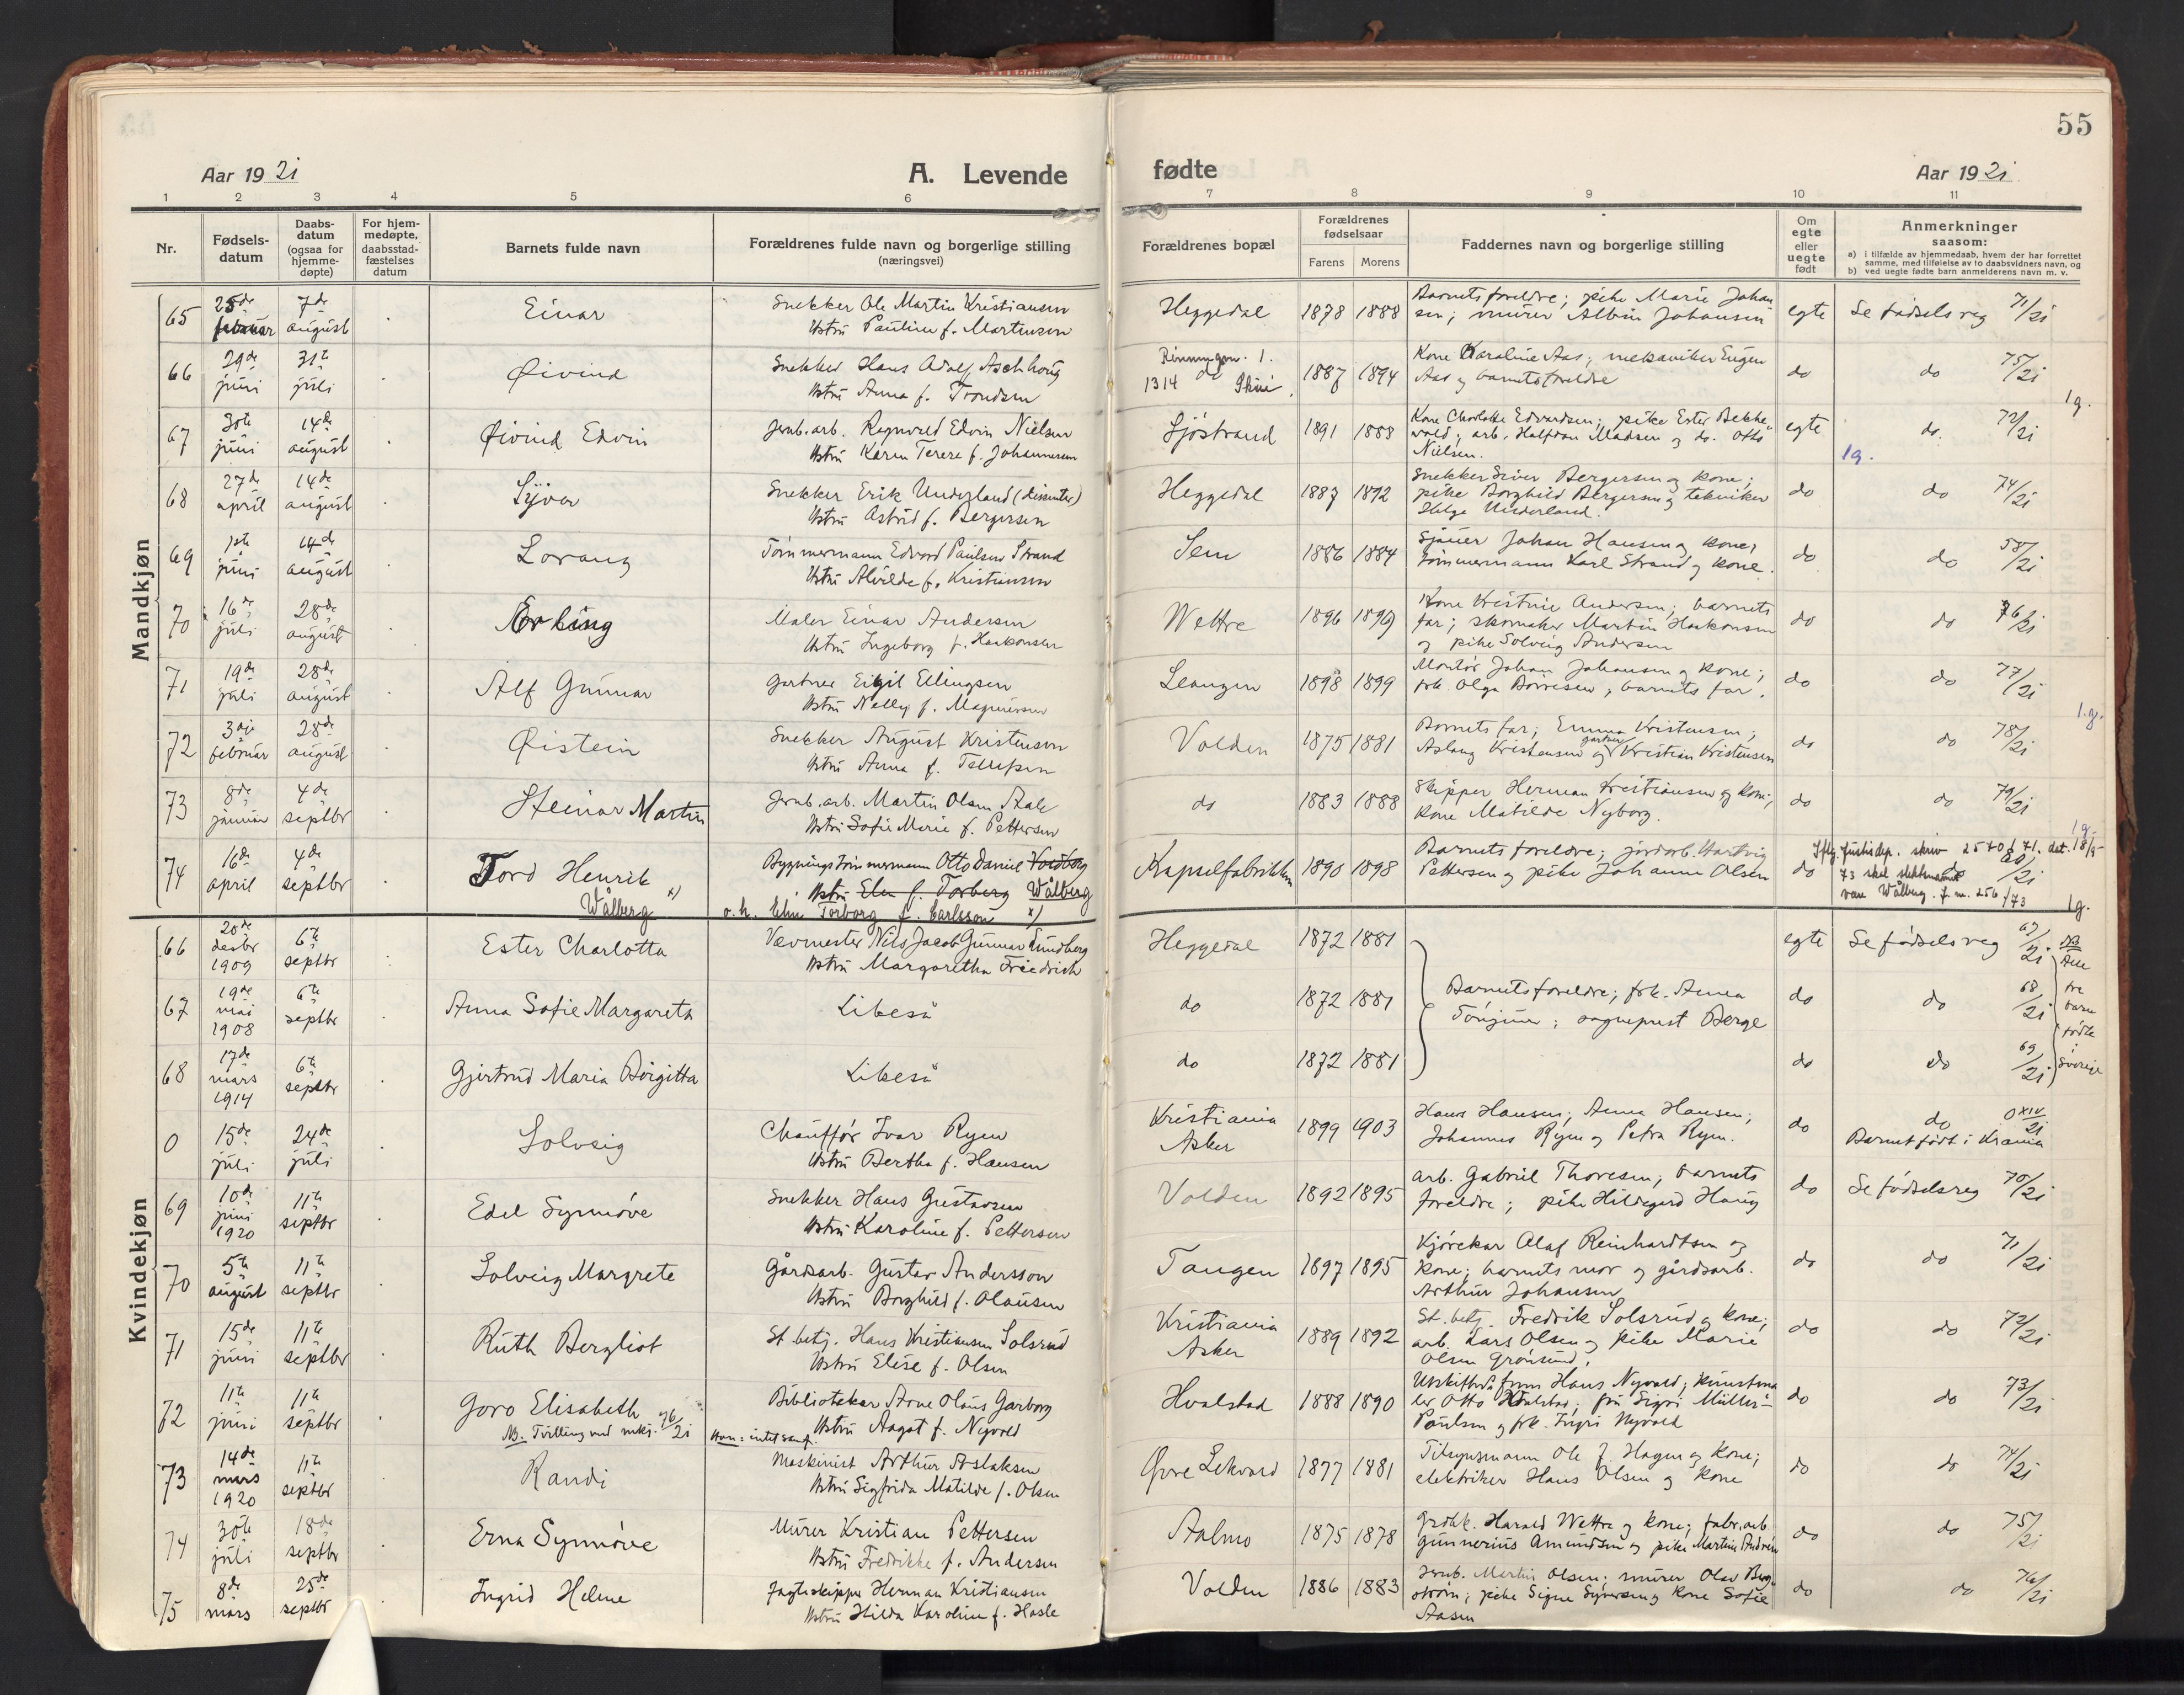 55
Aar 1921
A. Levende
fødte
Aar 1921
1 2 3 4 5 6 7 8 9 10 11
Nr.
Fødsels-
datum
Daabs-
datum
(ogsaa for
hjemme-
døpte)
For hjem-
medøpte,
daabsstad-
fæstelses
datum
Barnets fulde navn
Forældrenes fulde navn og borgerlige stilling
(næringsvei)
Forældrenes bopæl
Forældrenes
fødselsaar
Farens Morens
Faddernes navn og borgerlige stilling
Om
egte
eller
uegte
født
Anmerkninger
saasom:
a) i tilfælde av hjemmedaab, hvem der har forrettet
samme, med tilføielse av to daabsvidners navn, og
b) ved uegte fødte barn anmelderens navn m. v.
Mandkjøn
65 25de februar 7de august Einar
Snekker Ole Martin Kristiansen
Hstru Pauline f. Martinsen
Heggedal 1878 1888
Barnets foreldre; pike Marie Johan
sen; murer Albin Johansen
egte Se fødselsreg 71/21
66 29de juni 31te juli Øivind
Snekker Hans Adolf Aschhoug
Hstru Anna f. Trondsen
1314 do 1887 1894
Kone Karoline Aas; mekaniker Eugen
Aas og barnets foreldre
do do 75/21
67 30te juni 14de august Øivind Edvin
Jernb.arb. Ragnvald Edvin Nielsen
Hstru Karen Terese f. Johannesen
Sjøstrand 1891 1888
Kone Charlotte Edvardsen; pike Ester Bekke
vold; arb. Halfdan Madsen og do. Otto
Nielsen.
egte do. 72/21
1g.
68 27de april 14de august Syver
Snekker Erik Underland (dissenter)
Hstru Astrid f. Bergersen
Heggedal 1887 1892
Snekker Siver Bergersen og kone;
pike Borghild Bergersen og tekniker
Helge Underland.
do do 74/21
69 1ste juni 14de august Lorang
Tømmermann Edvard Paulsen Strand
Hstru Alvilde f. Kristiansen
Sem 1886 1884
Sjauer Johan Hansen og kone;
tømmermann Karl Strand og kone.
do do 58/21
70 16de juli 28de august Erling
Maler Einar Andersen
Hstru Ingeborg f. Haakonsen
Wettre 1896 1899
Kone Kristine Andersen; barnets
far; skomaker Martin Haakonsen
og pike Solveig Andersen
do do 76/21
71 19de juli 28de august Alf Gunnar
Gartner Eigil Ellingsen
Hstru Nelly f. Magnussen
Leangen 1898 1899
Montør Johan Johansen og kone;
frk. Olga Børresen; barnets far.
do do 77/21
72 3dje februar 28de august Øistein
Snekker August Kristensen
Hstru Anna f. Tellefsen
Volden 1875 1881
Barnets far; Emma Kristensen;
Aslaug Kristensen og gartner Kristian Kristensen
do do 78/21
73 8de januar 4de septbr Steinar Martin
Jernb.arb. Martin Olsen Aale
Hstru Sofie Marie f. Pettersen
do 1883 1888
Skipper Herman Kristiansen og kone;
kone Matilde Nyborg.
do do 79/21
74 16de april 4de septbr Tord Henrik
Wålberg x)
Bygningstømmermann Otto Daniel Wålberg
o.h. Elin Torborg f. Carlsson x)
Kapselfabrikken 1890 1898
Barnets foreldre; jordarb. Hartvig
Pettersen og pike Johanne Olsen
do
Iflg. Justisdep. skriv 2540/71. dat. 18/5
73 skal slektsnavnet
være Wålberg. J.m. 256/73
1g.
Kvindekjøn
66 20de desbr 1909 6te septbr Ester Charlotta
Vævmester Nils Jacob Gunnar Lindberg
Hstru Margaretha Friedrich
Heggedal 1872 1881
egte Se fødselsreg 67/21
67 19de mai 1908 6te septbr Anna Sofie Margareta
Likeså
do 1872 1881
Barnets foreldre; frk. Anna
Tønjum; sogneprest Berge
do do 68/21
NB Alle tre barn fødte i Sverige
68 17de mars 1914 6te septbr Gjertrud Maria Birgitta
Likeså
do 1872 1881 do do 69/21
0 15de juli 24de juli Solveig
Chauffør Ivar Ryen
Hstru Bertha f. Hansen
Kristiania
Asker
1899 1903
Hans Hansen; Anna Hansen;
Johannes Ryen og Petra Ryen.
do do 0 XIV/21
Barnet født i Krania
69 10de juni 1920 11te septbr Edel Synnøve
Snekker Hans Gustavsen
Hstru Karoline f. Pettersen
Volden 1892 1895
Arb. Gabriel Thoresen; barnets
foreldre; pike Hildegard Haug
do Se fødselsreg 70/21
70 5te august 11te septbr Solveig Margrete
Gårdsarb. Gustav Andersson
Hstru Borghild f. Olausen
Tangen 1897 1895
Kjørekar Olaf Reinhardtsen og
kone; barnets mor og gårdsarb.
Arthur Johansen
do do 71/21
71 15de juni 11te septbr Ruth Bergliot
St. betj. Hans Kristiansen Solsrud
Hstru Elise f. Olsen
Kristiania
Asker
1889 1892
St. betj. Fredrik Solsrud og kone;
arb. Lars Olsen og pike Marie
Olsen Grønsund.
do do 72/21
72 11te juni 11te septbr Goro Elisabeth
NB. Tvilling med mkj. 76/21
Bibliotekar Arne Olaus Garborg
Hstru Aagot f. Nyvold
Hvalstad 1888 1890
Hans Nyvold; kunstma
ler Otto Valstad; fru Sigri Müller-
Poulsen og frk. Ingri Nyvold
do do 73/21
73 14de mars 1920 11te septbr Randi
Maskinist Arthur Aslaksen
Hstru Sigfrida Matilde f. Olsen
Øvre Lekvard 1877 1881
Tilsynsmann Ole J. Hagen og kone;
elektriker Hans Olsen og kone
do do 74/21
74 30te juli 18de septbr Erna Synnøve
Murer Kristian Pettersen
Hstru Fredrikke f. Andersen
Aalmo 1875 1878
Grdbk. Harald Wettre og kone; fabr.arb.
Gunnerius Amundsen og pike Martine Andersen
do do 75/21
75 8de mars 25de septbr Ingrid Helene
Jagtskipper Herman Kristiansen
Hstru Hilda Karoline f. Hasle
Volden 1886 1883
Jernb. Martin Olsen; murer Olav Berg-
strøm; pike Signe Syversen og kone Sofie
Aasen
do do 76/21